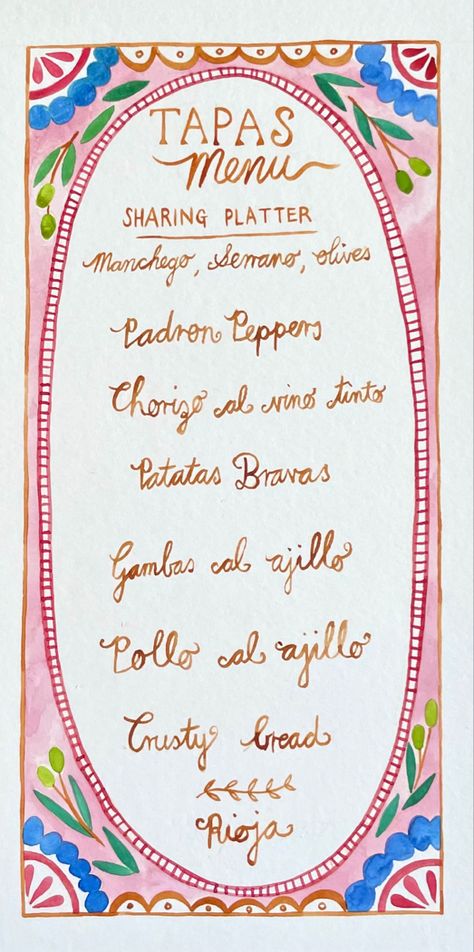 TAPAS
Menu
SHARING PLATTER
Manchego, Serrano, olives
Padron Peppers
Chorizo al vino tinto
Patatas Bravas
Gambas al ajillo
Pollo al ajillo
Crusty bread
Rioja